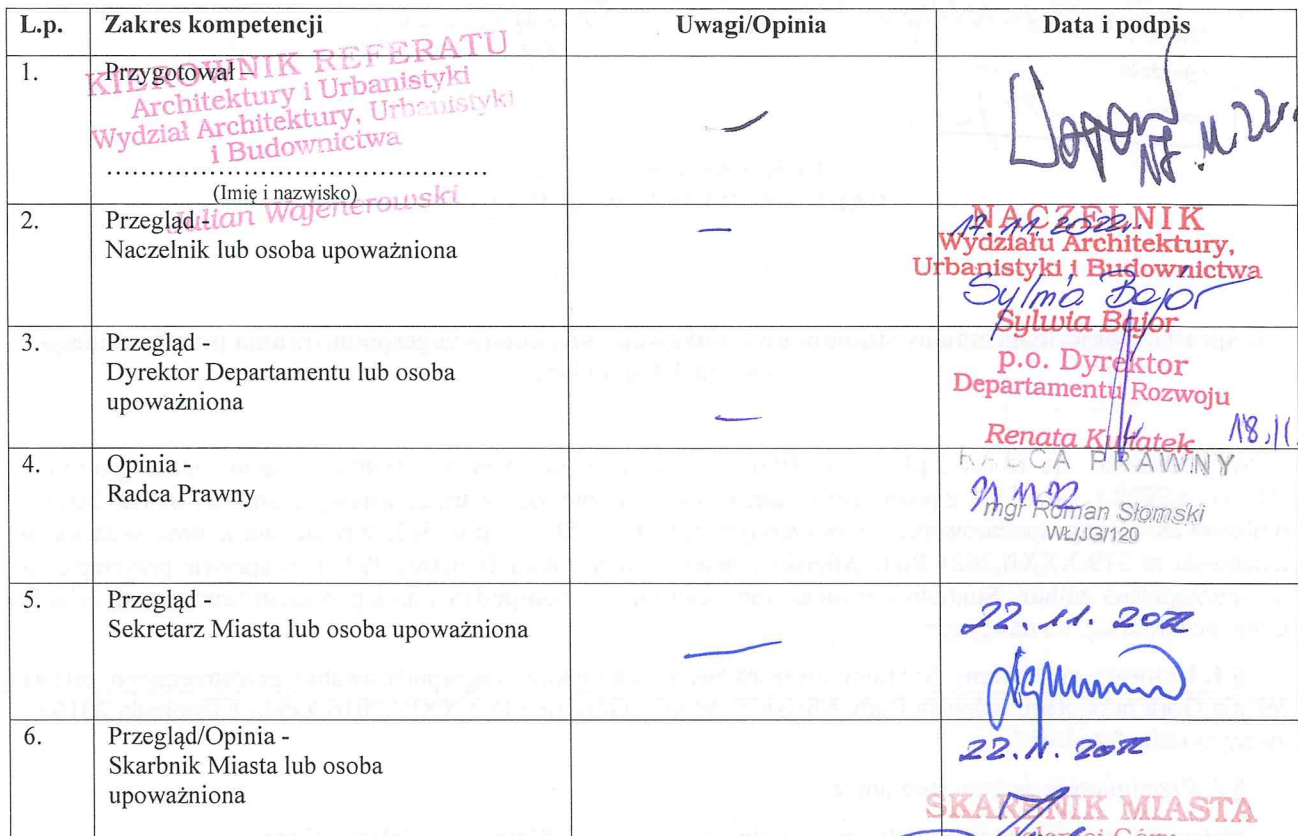 L.p. Zakres kompetencji Uwagi/Opinia Data i podpis
1. Przygotował –
KIEROWNIK REFERATU
Architektury i Urbanistyki
Wydział Architektury, Urbanistyki
i Budownictwa
(Imię i nazwisko)
Julian Wajenerowski
2. Przegląd -
Naczelnik lub osoba upoważniona
17.11.2022r.
NACZELNIK
Wydziału Architektury,
Urbanistyki i Budownictwa
Sylwia Bajor
Sylwia Bajor
3. Przegląd -
Dyrektor Departamentu lub osoba
upoważniona
p.o. Dyrektor
Departamentu Rozwoju
Renata
18.11
4. Opinia -
Radca Prawny
RADCA PRAWNY
21.11.22
mgr Roman Słomski
WŁ/JG/120
5. Przegląd -
Sekretarz Miasta lub osoba upoważniona
22.11.2022
6. Przegląd/Opinia -
Skarbnik Miasta lub osoba
upoważniona
22.11.2022
SKARBNIK MIASTA
Jeleniej Góry